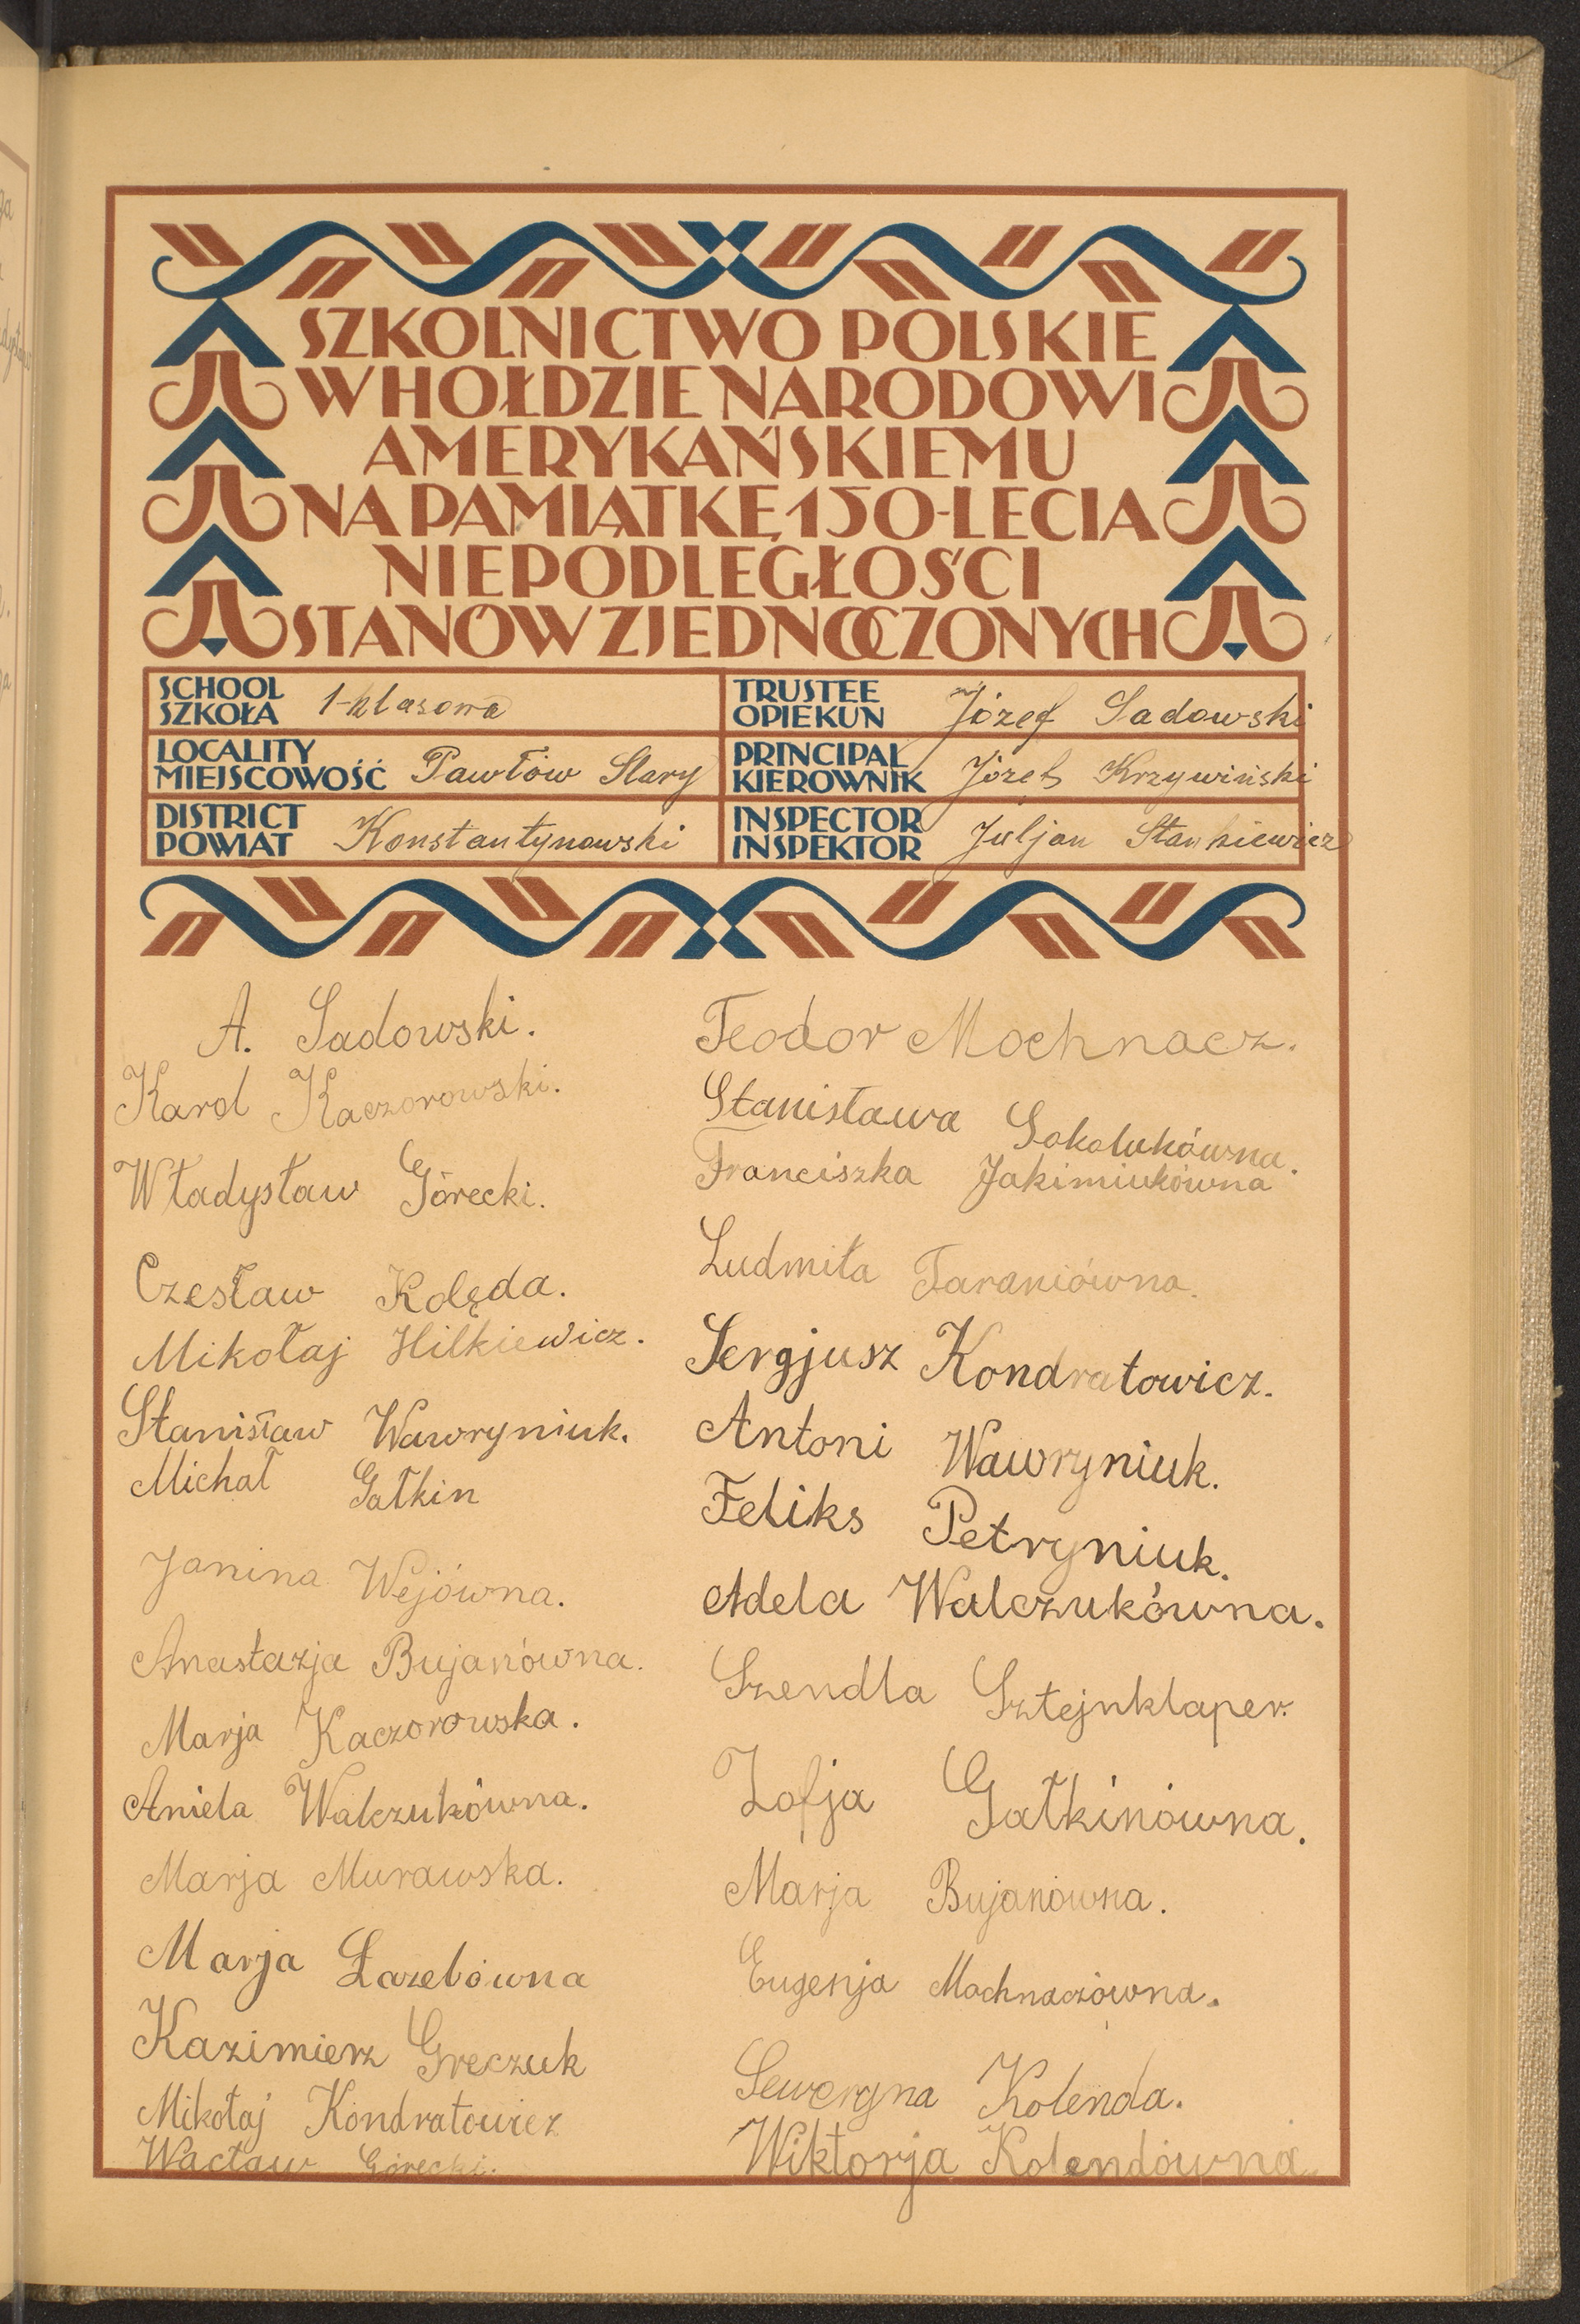 SZKOLNICTWO POLSKIE
W HOŁDZIE NARODOWI
AMERYKAŃSKIEMU
NA PAMIĄTKĘ 150-LECIA
NIEPODLEGŁOŚCI
STANÓW ZJEDNOCZONYCH
SCHOOL
SZKOŁA 1-klasowa
TRUSTEE
OPIEKUN Józef Sadowski
LOCALITY
MIEJSCOWOŚĆ Pawłów Stary
PRINCIPAL
KIEROWNIK Józef Krzywiński
DISTRICT
POWIAT Konstantynowski
INSPECTOR
INSPEKTOR Juljan Stankiewicz
A. Sadowski.
Karol Kaczorowski.
Władysław Górecki.
Czesław Kolęda.
Mikołaj Hilkiewicz.
Stanisław Wawryniuk.
Michał Gałkin
Janina Wejówna.
Anastazja Bujanówna.
Marja Kaczorowska.
Aniela Walczukówna.
Marja Murawska.
Marja Łazebówna
Kazimierz Greczuk
Mikołaj Kondratowicz
Wacław Górecki.
Teodor Mochnacz.
Stanisława Sokolukówna.
Franciszka Jakimiukówna
Ludmiła Taraniówna.
Sergjusz Kondratowicz.
Antoni Wawryniuk.
Feliks Petryniuk.
Adela Walczukówna.
Szendla Sztejnklaper.
Zofja Gałkinówna.
Marja Bujanówna.
Eugenja Mochnaczówna.
Seweryna Kolenda.
Wiktorja Kolendówna.